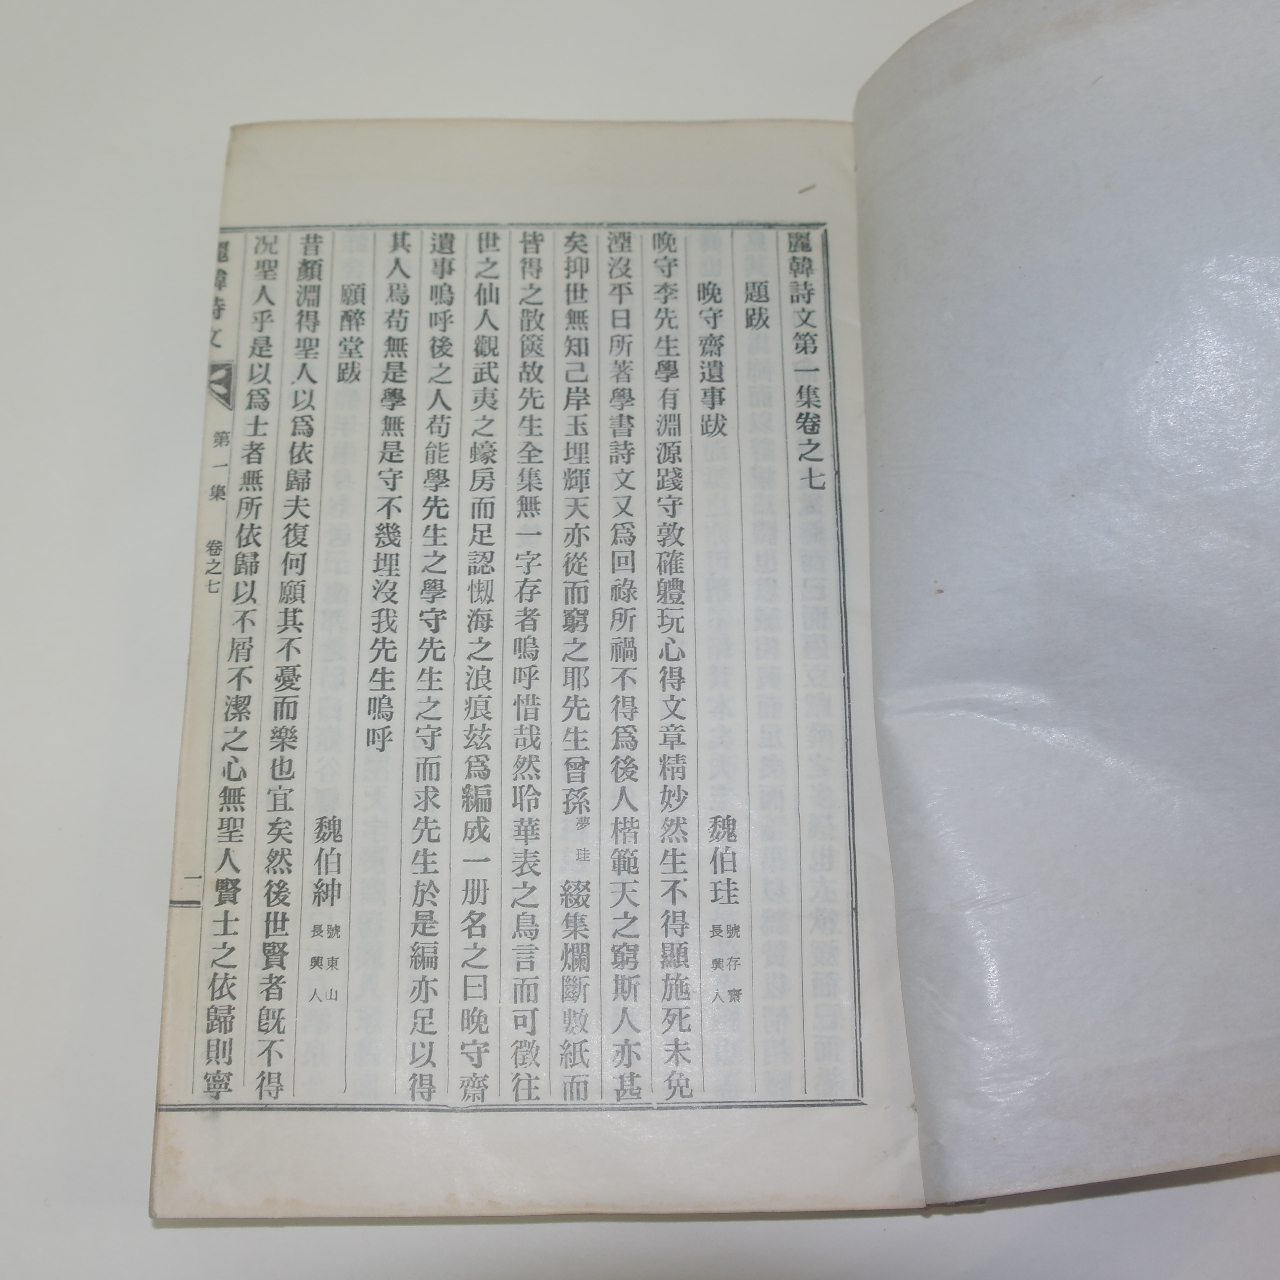 麗韓詩文第一集卷之七
題跋
晩守齋遺事跋
魏伯珪 號存齋 長興人
晩守李先生學有淵源踐守敦確軆玩心得文章精妙然生不得顯施死未免
湮沒平日所著學書詩文又爲回祿所禍不得爲後人楷範天之窮斯人亦甚
矣抑世無知己岸玉埋輝天亦從而窮之耶先生曾孫夢珪綴集爛斷數紙而
皆得之散篋故先生全集無一字存者嗚呼惜哉然聆華表之鳥言而可徵往
世之仙人觀武夷之蠔房而足認㤼海之浪痕玆爲編成一册名之曰晩守齋
遺事嗚呼後之人苟能學先生之學守先生之守而求先生於是編亦足以得
其人焉苟無是學無是守不幾埋沒我先生嗚呼
願醉堂跋
魏伯紳 號東山 長興人
昔顏淵得聖人以爲依歸夫復何願其不憂而樂也宜矣然後世賢者旣不得
况聖人乎是以爲士者無所依歸以不屑不潔之心無聖人賢士之依歸則寧
麗韓詩文 第一集 卷之七 一